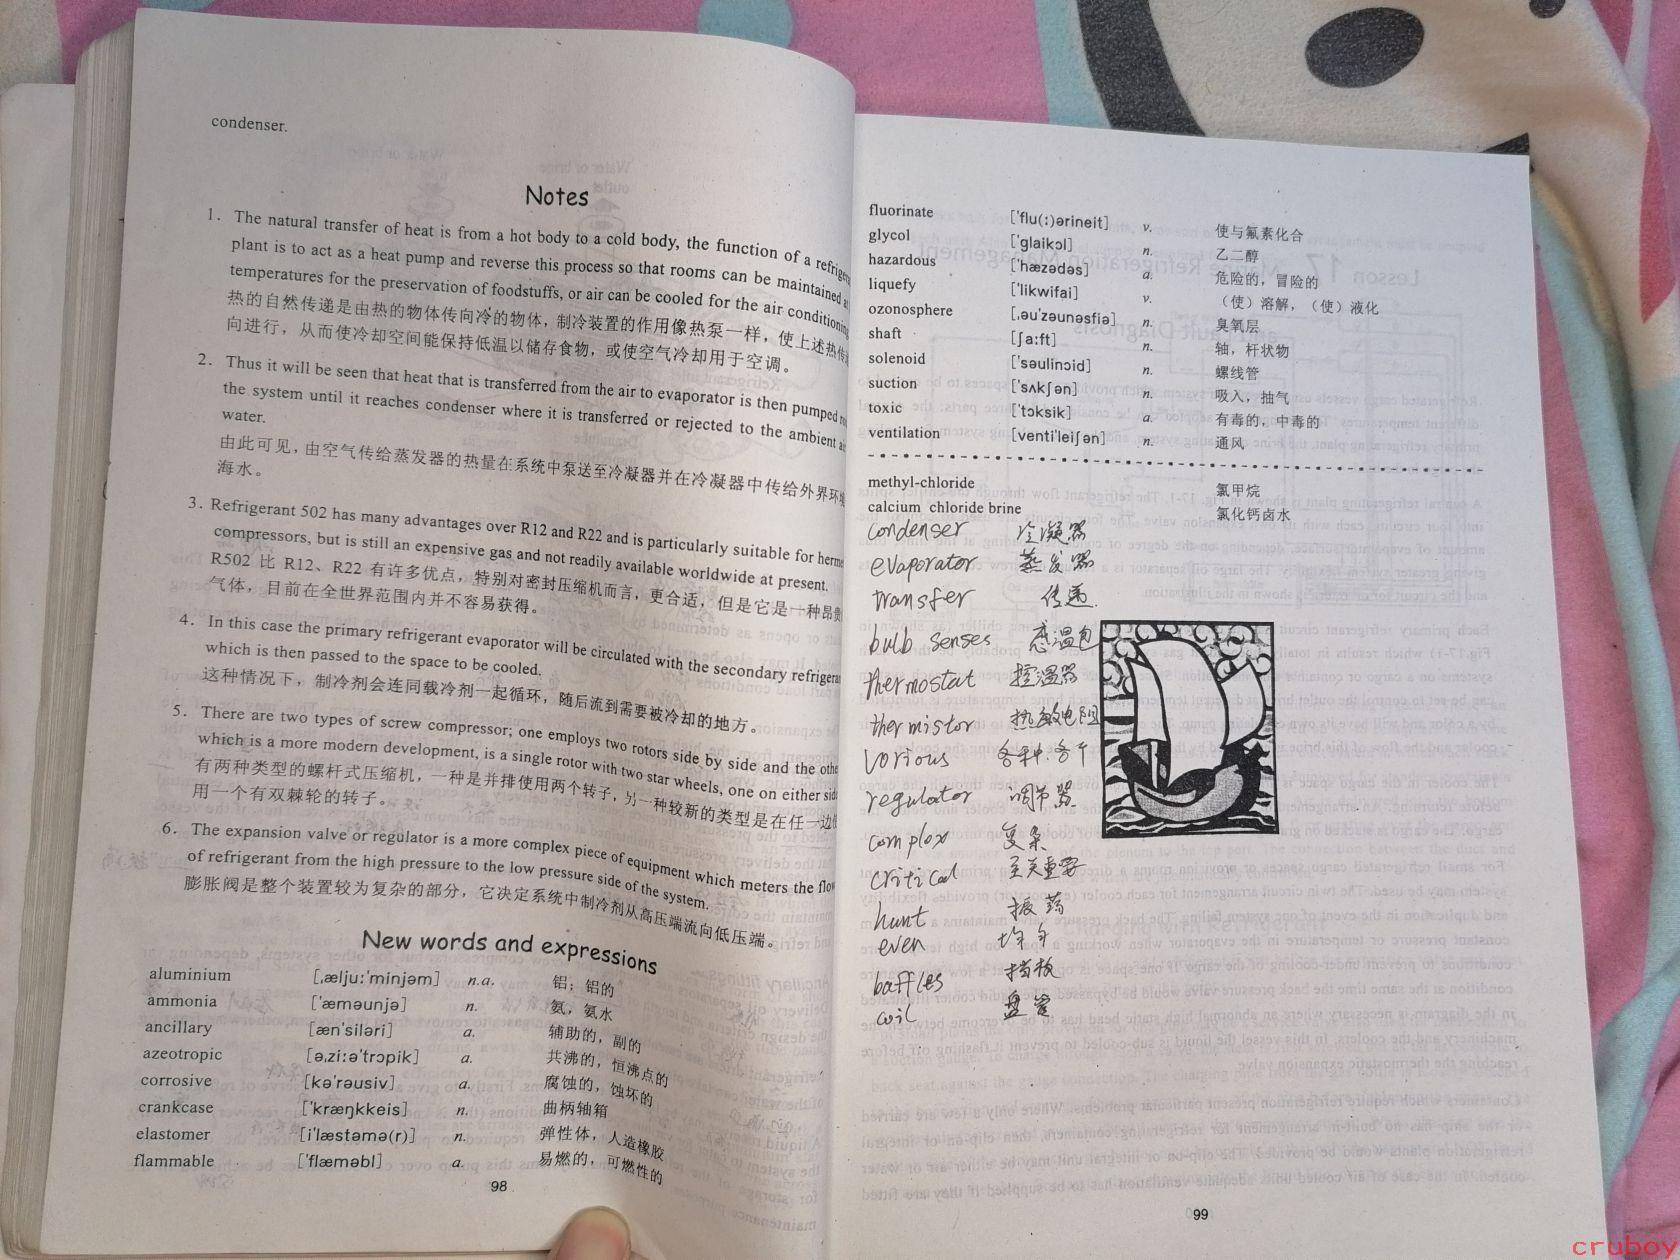 condenser.
Notes
1. The natural transfer of heat is from a hot body to a cold body, the function of a
plant is to act as a heat pump and reverse this process so that rooms can be maintained
temperatures for the preservation of foodstuffs, or air can be cooled for the air conditioning
热的自然传递是由热的物体传向冷的物体，制冷装置的作用像热泵一样，使上述热传
向进行，从而使冷却空间能保持低温以储存食物，或使空气冷却用于空调。
2. Thus it will be seen that heat that is transferred from the air to evaporator is then pumped
the system until it reaches condenser where it is transferred or rejected to the ambient
water.
由此可见，由空气传给蒸发器的热量在系统中泵送至冷凝器并在冷凝器中传给外界环
海水。
3. Refrigerant 502 has many advantages over R12 and R22 and is particularly suitable for
compressors, but is still an expensive gas and not readily available worldwide at present.
R502 比 R12、R22 有许多优点，特别对密封压缩机而言，更合适，但是它是一种昂贵
气体，目前在全世界范围内并不容易获得。
4. In this case the primary refrigerant evaporator will be circulated with the secondary
which is then passed to the space to be cooled.
这种情况下，制冷剂会连同载冷剂一起循环，随后流到需要被冷却的地方。
5. There are two types of screw compressor; one employs two rotors side by side and the
which is a more modern development, is a single rotor with two star wheels, one on either
有两种类型的螺杆式压缩机，一种是并排使用两个转子，另一种较新的类型是在任一边
用一个有双棘轮的转子。
6. The expansion valve or regulator is a more complex piece of equipment which meters the flow
of refrigerant from the high pressure to the low pressure side of the system.
膨胀阀是整个装置较为复杂的部分，它决定系统中制冷剂从高压端流向低压端。
New words and expressions
aluminium [ˌælju:ˈminjəm] n.a. 铝；铝的
ammonia [ˈæməunjə] n. 氨，氨水
ancillary [ænˈsiləri] a. 辅助的，副的
azeotropic [əˌzi:əˈtrɔpik] a. 共沸的，恒沸点的
corrosive [kəˈrəusiv] a. 腐蚀的，蚀坏的
crankcase [ˈkræŋkkeis] n. 曲柄轴箱
elastomer [iˈlæstəmə(r)] n. 弹性体，人造橡胶
flammable [ˈflæməbl] a. 易燃的，可燃性的
98
fluorinate [ˈflu(:)ərineit] v. 使与氟素化合
glycol [ˈglaikɔl] n. 乙二醇
hazardous [ˈhæzədəs] a. 危险的，冒险的
liquefy [ˈlikwifai] v. （使）溶解，（使）液化
ozonosphere [ˌəuˈzəunəsfiə] n. 臭氧层
shaft [ʃa:ft] n. 轴，杆状物
solenoid [ˈsəulinɔid] n. 螺线管
suction [ˈsʌkʃən] n. 吸入，抽气
toxic [ˈtɔksik] a. 有毒的，中毒的
ventilation [ventiˈleiʃən] n. 通风
methyl-chloride 氯甲烷
calcium chloride brine 氯化钙卤水
condenser 冷凝器
evaporator 蒸发器
transfer 传递.
bulb senses 感温包
thermostat 控温器
thermistor 热敏电阻
various 各种.各个
regulator 调节器
complex 复杂
critical 至关重要
hunt 振荡
even
baffles 挡板
coil 盘管
99
cruboy